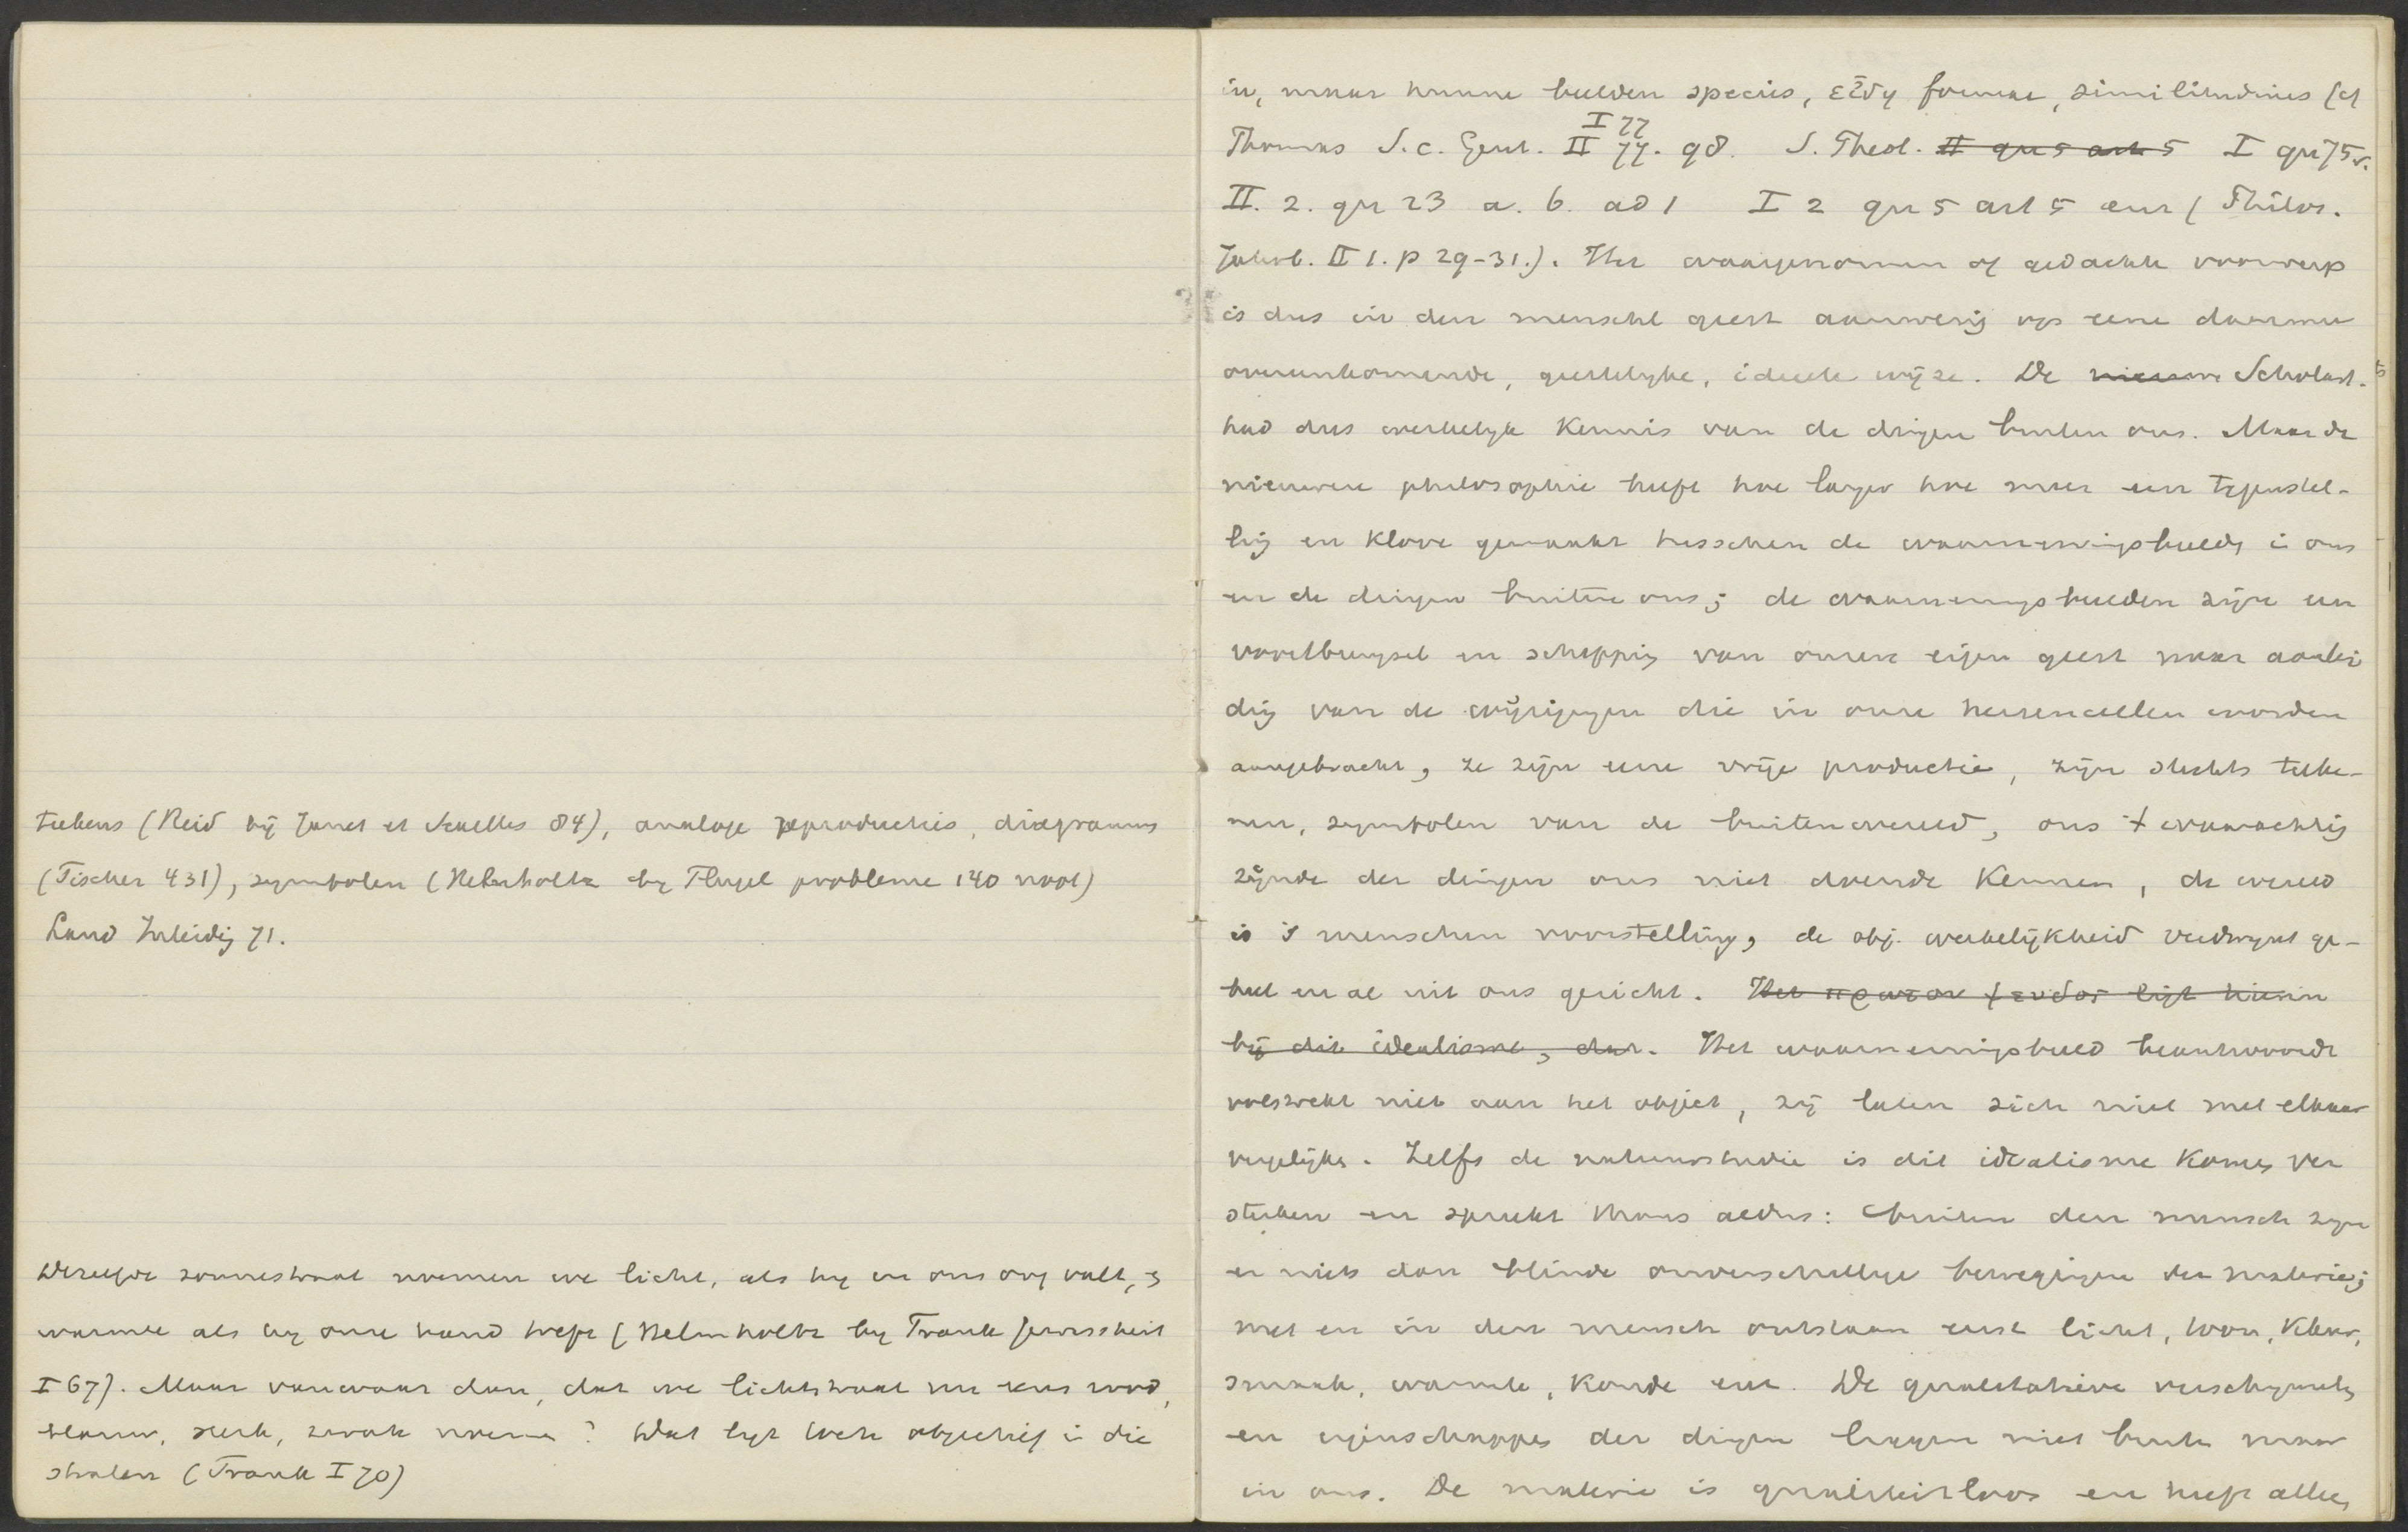 teekens (Reid bij Janet et Séailles 84), analoge reproducties, diagrammes
(Fischer 431), symbolen (Helmholtz by Flugel probleme 140 noot)
Land Inleidig 71.
Dezelfde zonnestraal noemen we licht, als hy in ons oog valt, &
warmte als hy onze hand treft (Helmholtz by Frank Gewissheit
I 67). Maar vanwaar dan, dat we lichtstraal nu eens rood,
blauw, sterk, zwak noemen? Wat ligt toch objectief in die
stralen (Frank I 70)
in, maar hunne beelden species, εἴδη formae, similitudines (cf
I 77
Thomas S. c. Gent. II 77. 98. S. Theol. II qu 5 art 5 I qu 75 v.
II. 2. qu 23 a. 6. ad 1 I 2 qu 5 art 5 enz ( Philos.
Jahrb. II 1. p 29-31.). Het waargenomen of gedachte voorwerp
is dus in den menschl geest aanwezig op eene daarmee
overeenkomende, geestelyke, ideele wijze. De nieuwe Scholast.
had dus werkelyk Kennis van de dingen buiten ons. Maar de
nieuwere philosophie heeft hoe langer hoe meer een tegenstel-
lig en Klove gemaakt tusschen de waarnemingsbeeldn in ons
en de dingen buiten ons; de waarnemingsbeelden zijn een
voortbrengsel en schepping van onzen eigen geest naar aanlei
dig van de wijzigingen die in onze hersencellen worden
aangebracht, ze zijn eene vrije productie, zijn slechts teeke-
nen, symbolen van de buitenwereld, ons + waarachtig
zijnde der dingen ons niet doende Kennen, de wereld
is 's menschen voorstelling, de obj. werkelijkheid verdwynt ge-
heel en al uit ons gezicht. Het πρωτον ψευδος ligt hierin
bij dit idealisme, dat. Het waarnemingsbeeld beantwoordt
volstrekt niet aan het object, zij laten zich niet met elkaar
vergelijken. Zelfs de natuurstudie is dit idealisme Komen ver
sterken en spreekt thans aldus: buiten den mensch zyn
er niets dan blinde onverschillige bewegingen der materie;
met en in den mensch ontstaan eerst licht, toon, Kleur,
smaak, warmte, Koude enz. De qualitatieve verschynseln
en eigenschappen der dingen liggen niet buiten maar
in ons. De materie is qualiteitloos en heeft alleen